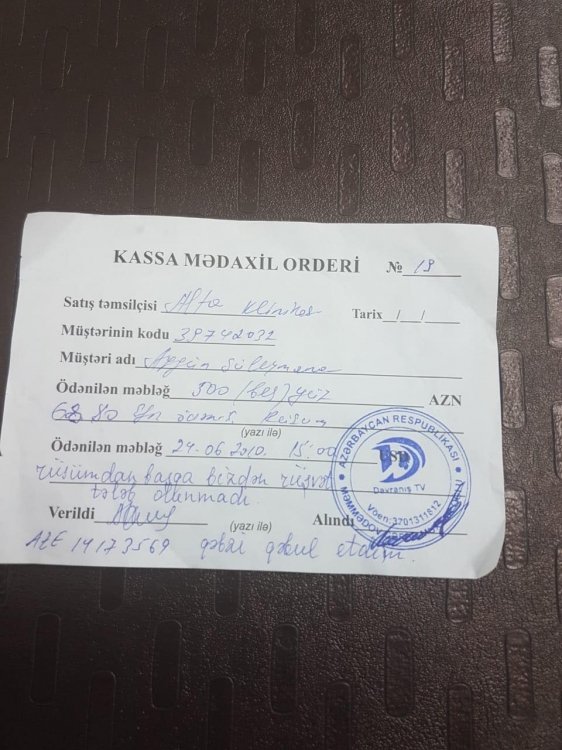 KASSA MƏDAXİL ORDERİ № 19
Satış təmsilçisi Alfa klinika Tarix _/_/_
Müştərinin kodu 39742032
Müştəri adı Süleymana
Ödənilən məbləğ 500 (beş) yüz AZN
80
(yazı ilə)
Ödənilən məbləğ 24.06.2010. 15:00 USD
rüsumdan başqa bizdən rüşvət
tələb olunmadı.
Verildi (yazı ilə) Alındı
AZE 14173569 qəbzi qəbul etdim.
AZƏRBAYCAN RESPUBLİKASI
Davranış TV
Vöen: 3701311812
MƏMMƏDOV